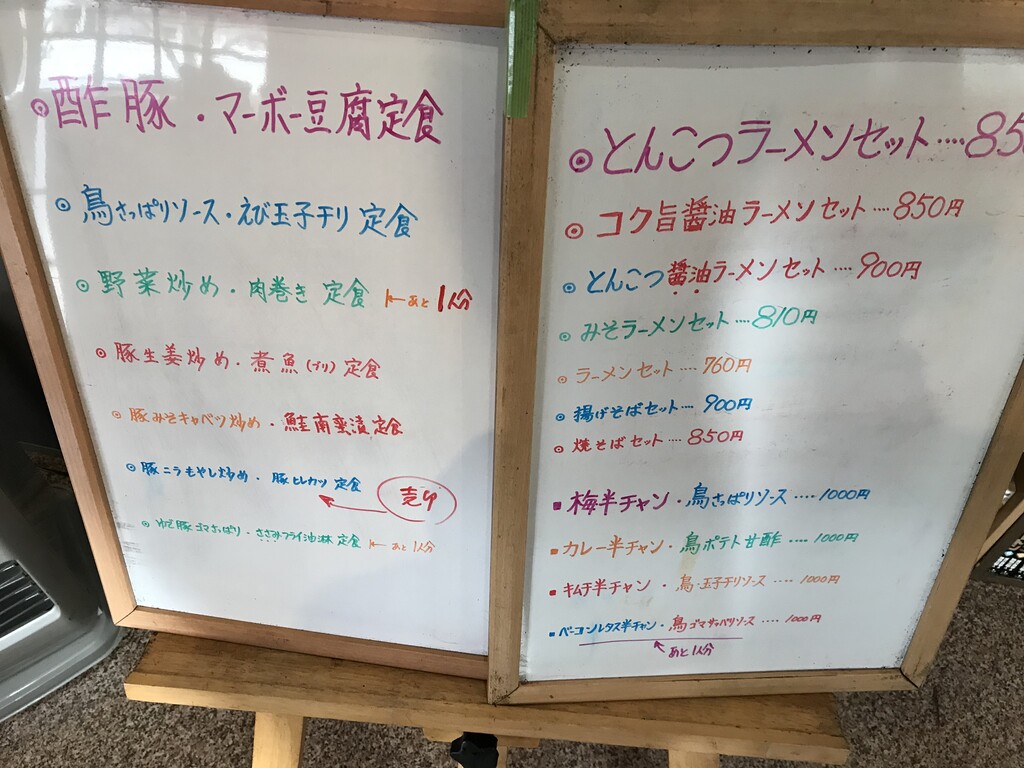 ◎酢豚・マーボー豆腐定食
◎鳥さっぱりソース・えび玉子チリ定食
◎野菜炒め・肉巻き定食 ←あと1人分
◎豚生姜炒め・煮魚(ブリ)定食
◎豚みそキャベツ炒め・鮭南蛮漬定食
◎豚ニラもやし炒め・豚ヒレカツ定食
売り
◎ゆで豚ゴマさっぱり・ささみフライ油淋定食 ←あと1人分
◎とんこつラーメンセット‥‥85
◎コク旨醤油ラーメンセット‥‥850円
◎とんこつ醤油ラーメンセット‥‥900円
◎みそラーメンセット‥‥810円
◎ラーメンセット‥‥760円
◎揚げそばセット‥‥900円
◎焼そばセット‥‥850円
■梅半チャン・鳥さっぱりソース‥‥1000円
■カレー半チャン・鳥ポテト甘酢‥‥1000円
■キムチ半チャン・鳥・玉子チリソース‥‥1000円
■ベーコンレタス半チャン・鳥ゴマサッパリソース‥‥1000円
あと1人分